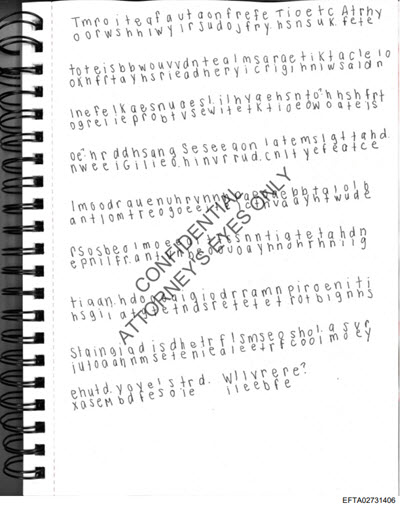 Tmroiteqfautaonfrefe Tioetc Atrhy
oorwshhlwyirsudojfry.hsnsuk.fete
toteisbbwouvvdntealmsaraetiktacle lo
okhfrtayhsrieadneryicrighniwsaldn
Inefelkaesnuaes!.ilhyaehsnto"hhshfrt
ogrelieprobtvsewitetktioeowoateys
oe"hr ddhsang Seseeaon latemslgttahd.
nweeiGilieg.hinvrrud.cnltyefeatce
lmoodrauenuhrvnn ebbtalolb
antlomtreogoee
rsosbeolmoe snntiatetahdn
epnilfr.an uoayhnohrhniig
tiaan.hdo igiodrramnpiroeniti
hsgii etndsretetetrotbignhs
Slainglad isdhetrflsmseoshol.a svr
iutoaahnmseteniealeetrfcoolmoey
ehutd.yoyelstrd. Wllvrere?
xasembdfesoie ileebfe
CONFIDENTIAL
ATTORNEY'S EYES ONLY
EFTA02731406